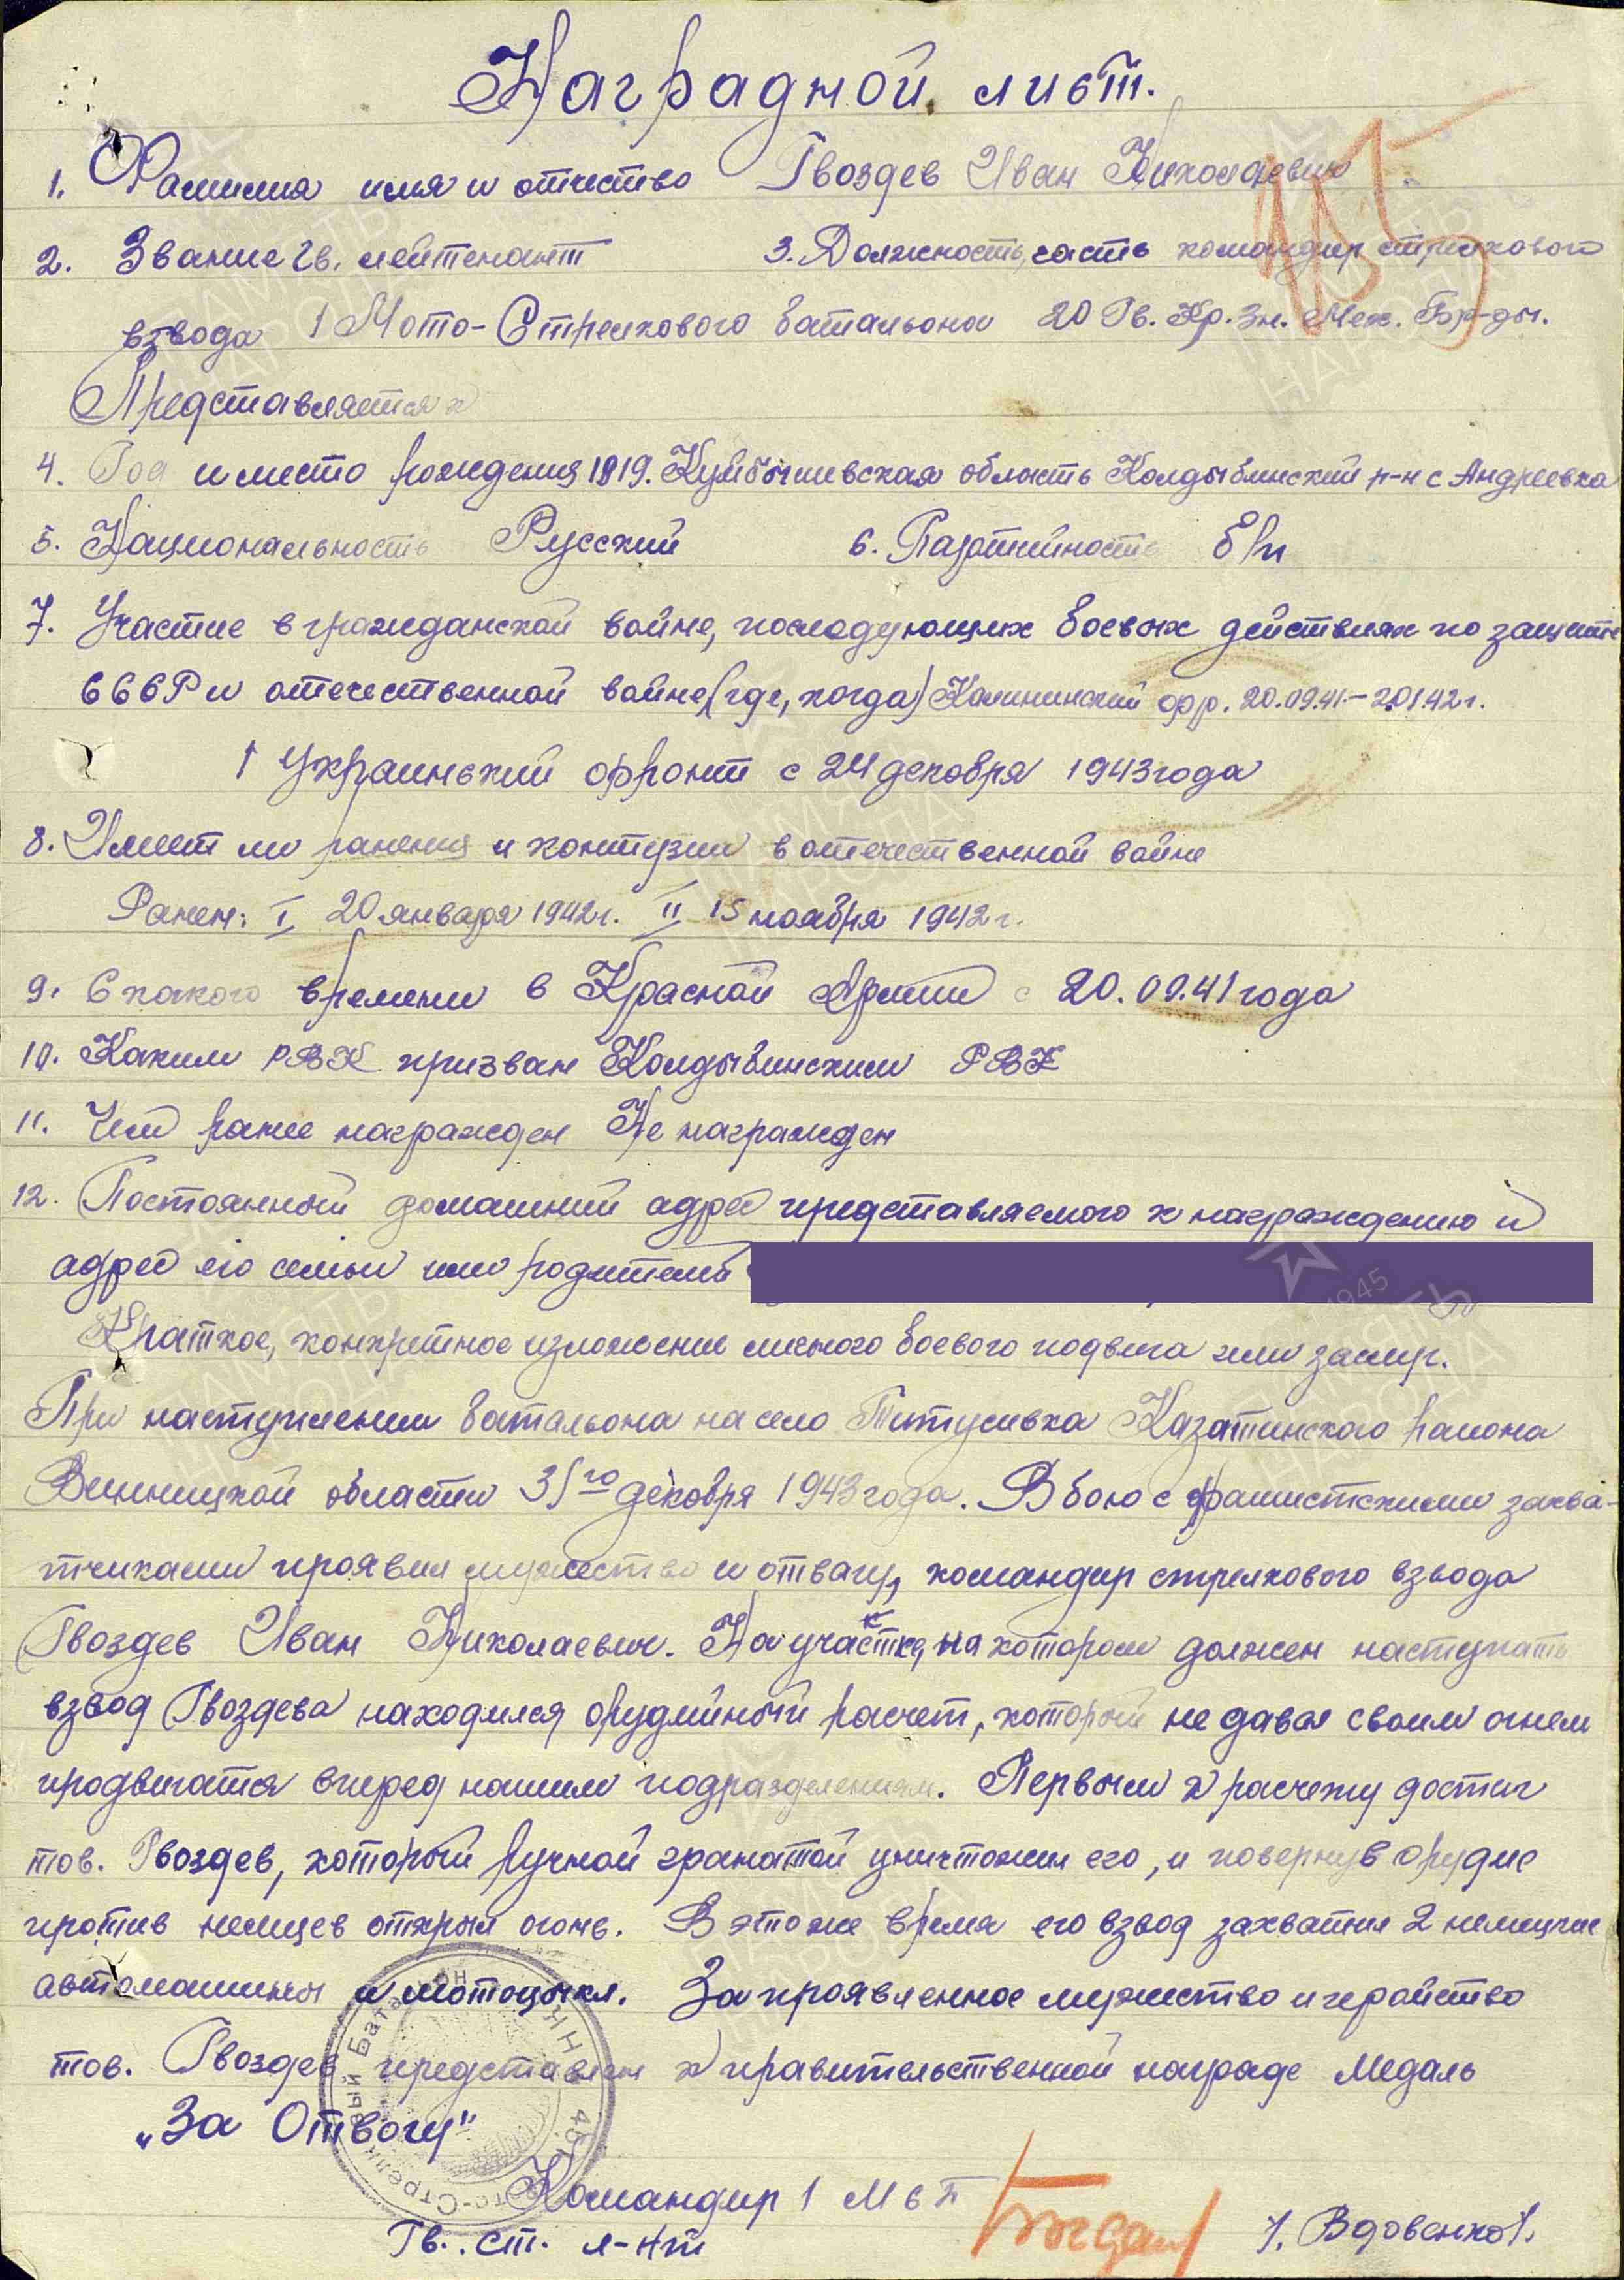 Наградной лист.
1. Фамилия имя и отчество Гвоздев Иван Николаевич
2. Звание Гв. лейтенант 3. Должность, часть командир стрелкового
взвода 1 Мото-Стрелкового батальона 20 Гв. Кр. Зн. Мех. Бр-ды.
Представляется к
4. Год и место рождения 1919. Куйбышевская область Колдыбинский р-н с Андреевка
5. Национальность Русский 6. Партийность б/п
7. Участие в гражданской войне, последующих боевых действиях по защите
СССР и отечественной войне (где, когда) Калининский фр. 20.09.41-20.1.42 г.
1 Украинский фронт с 24 декабря 1943 года
8. Имеет ли ранения и контузии в отечественной войне
Ранен: I 20 января 1942 г. II 15 ноября 1942 г.
9. С какого времени в Красной Армии с 20.09.41 года
10. Каким РВК призван Колдыбинским РВК
11. Чем ранее награжден Не награжден
12. Постоянный домашний адрес представляемого к награждению и
адрес его семьи или родителей
Краткое, конкретное изложение личного боевого подвига или заслуг.
При наступлении батальона на село Титусивка Казатинского района
Винницкой области 31го декабря 1943 года. В бою с фашистскими захва-
тчиками проявил мужество и отвагу, командир стрелкового взвода
Гвоздев Иван Николаевич. На участке, на котором должен наступать
взвод Гвоздева находился орудийный расчет, который не давал своим огнем
продвигатся вперед нашим подразделениям. Первым к расчету достиг
тов. Гвоздев, который ручной гранатой уничтожил его, и повернув орудие
против немцев открыл огонь. В это же время его взвод захватил 2 немецкие
автомашины и мотоцыкл. За проявленное мужество и геройство
тов. Гвоздев представлен к правительственной награде Медаль
„За Отвагу"
Командир 1 МСБ
Гв. ст. л-нт /. Вдовенко /.
ПАМЯТЬ
НАРОДА
1945